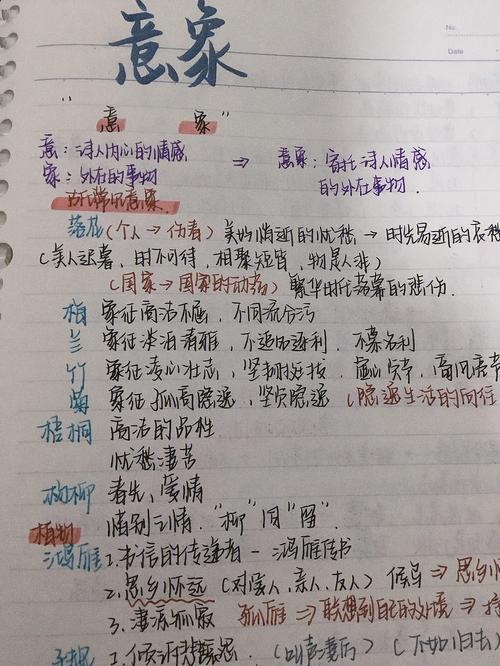 No.
Date
意象
"意 象"
意：诗人内心的情感 ⇒ 意象：寄托诗人情感
象：外在的事物 的外在事物.
常见意象.
落花 (个人→伤春) 美好消逝的忧愁 → 时光易逝的哀愁
(美人迟暮，时不可待，相聚短暂，物是人非)
(国家→国家的动荡) 繁华时代落幕的悲伤.
梅 象征高洁不屈，不同流合污
兰 象征淡泊清雅，不追逐利，不慕名利
竹 象征凌心壮志，坚韧挺拔，虚心守节，高风亮节
菊 象征孤高隐逸，坚贞隐逸 (隐逸生活的向往
梧桐 高洁的品性
忧愁凄苦
杨柳 春光，爱情
惜别之情."柳"同"留".
植物
鸿雁 1.书信的传递者 - 鸿雁传书
2.思乡怀远 (对爱人、亲人、友人) 候鸟 ⇒ 思乡
3.凄凉孤寂 孤雁 ⇒ 联想到自己的处境 ⇒
子规 1.倾诉悲 怨. (叫声凄厉) (不如归去